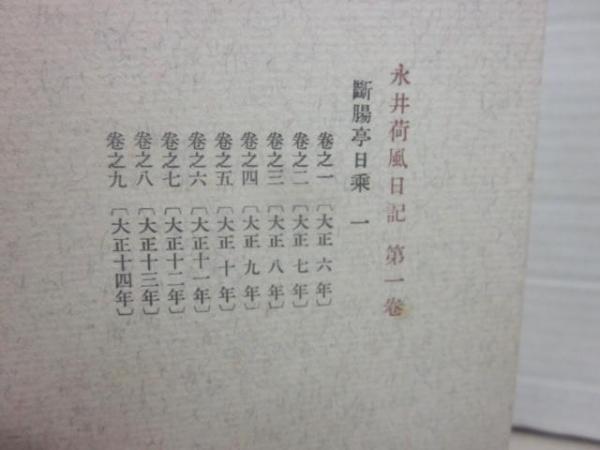 永井荷風日記 第一卷
斷腸亭日乘 一
卷之一〔大正六年〕
卷之二〔大正七年〕
卷之三〔大正八年〕
卷之四〔大正九年〕
卷之五〔大正十年〕
卷之六〔大正十一年〕
卷之七〔大正十二年〕
卷之八〔大正十三年〕
卷之九〔大正十四年〕